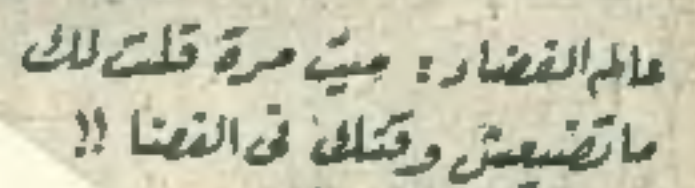 عالم الفضاء : ميت مرة قلت لك
ماتضيعش وقتك فى الفضا !!